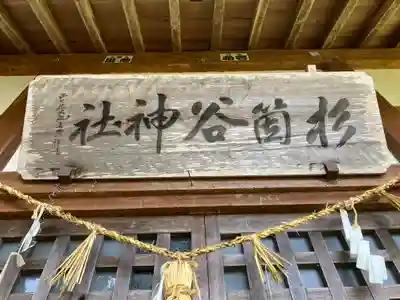 杉箇谷神社